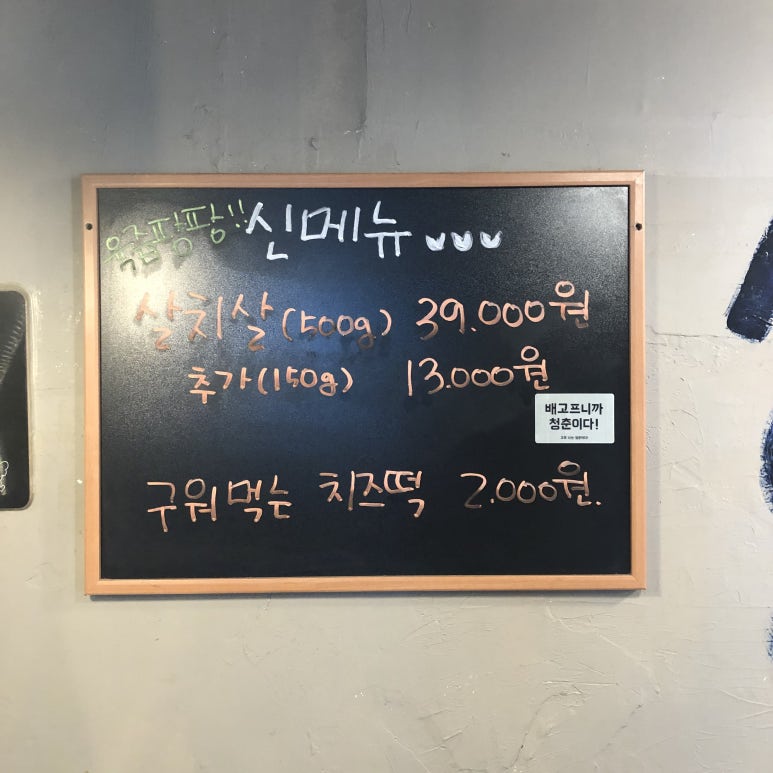 육즙팡팡!! 신메뉴
살치살(500g) 39.000원
추가(150g) 13.000원
배고프니까
청춘이다!
구워먹는 치즈떡 2.000원.